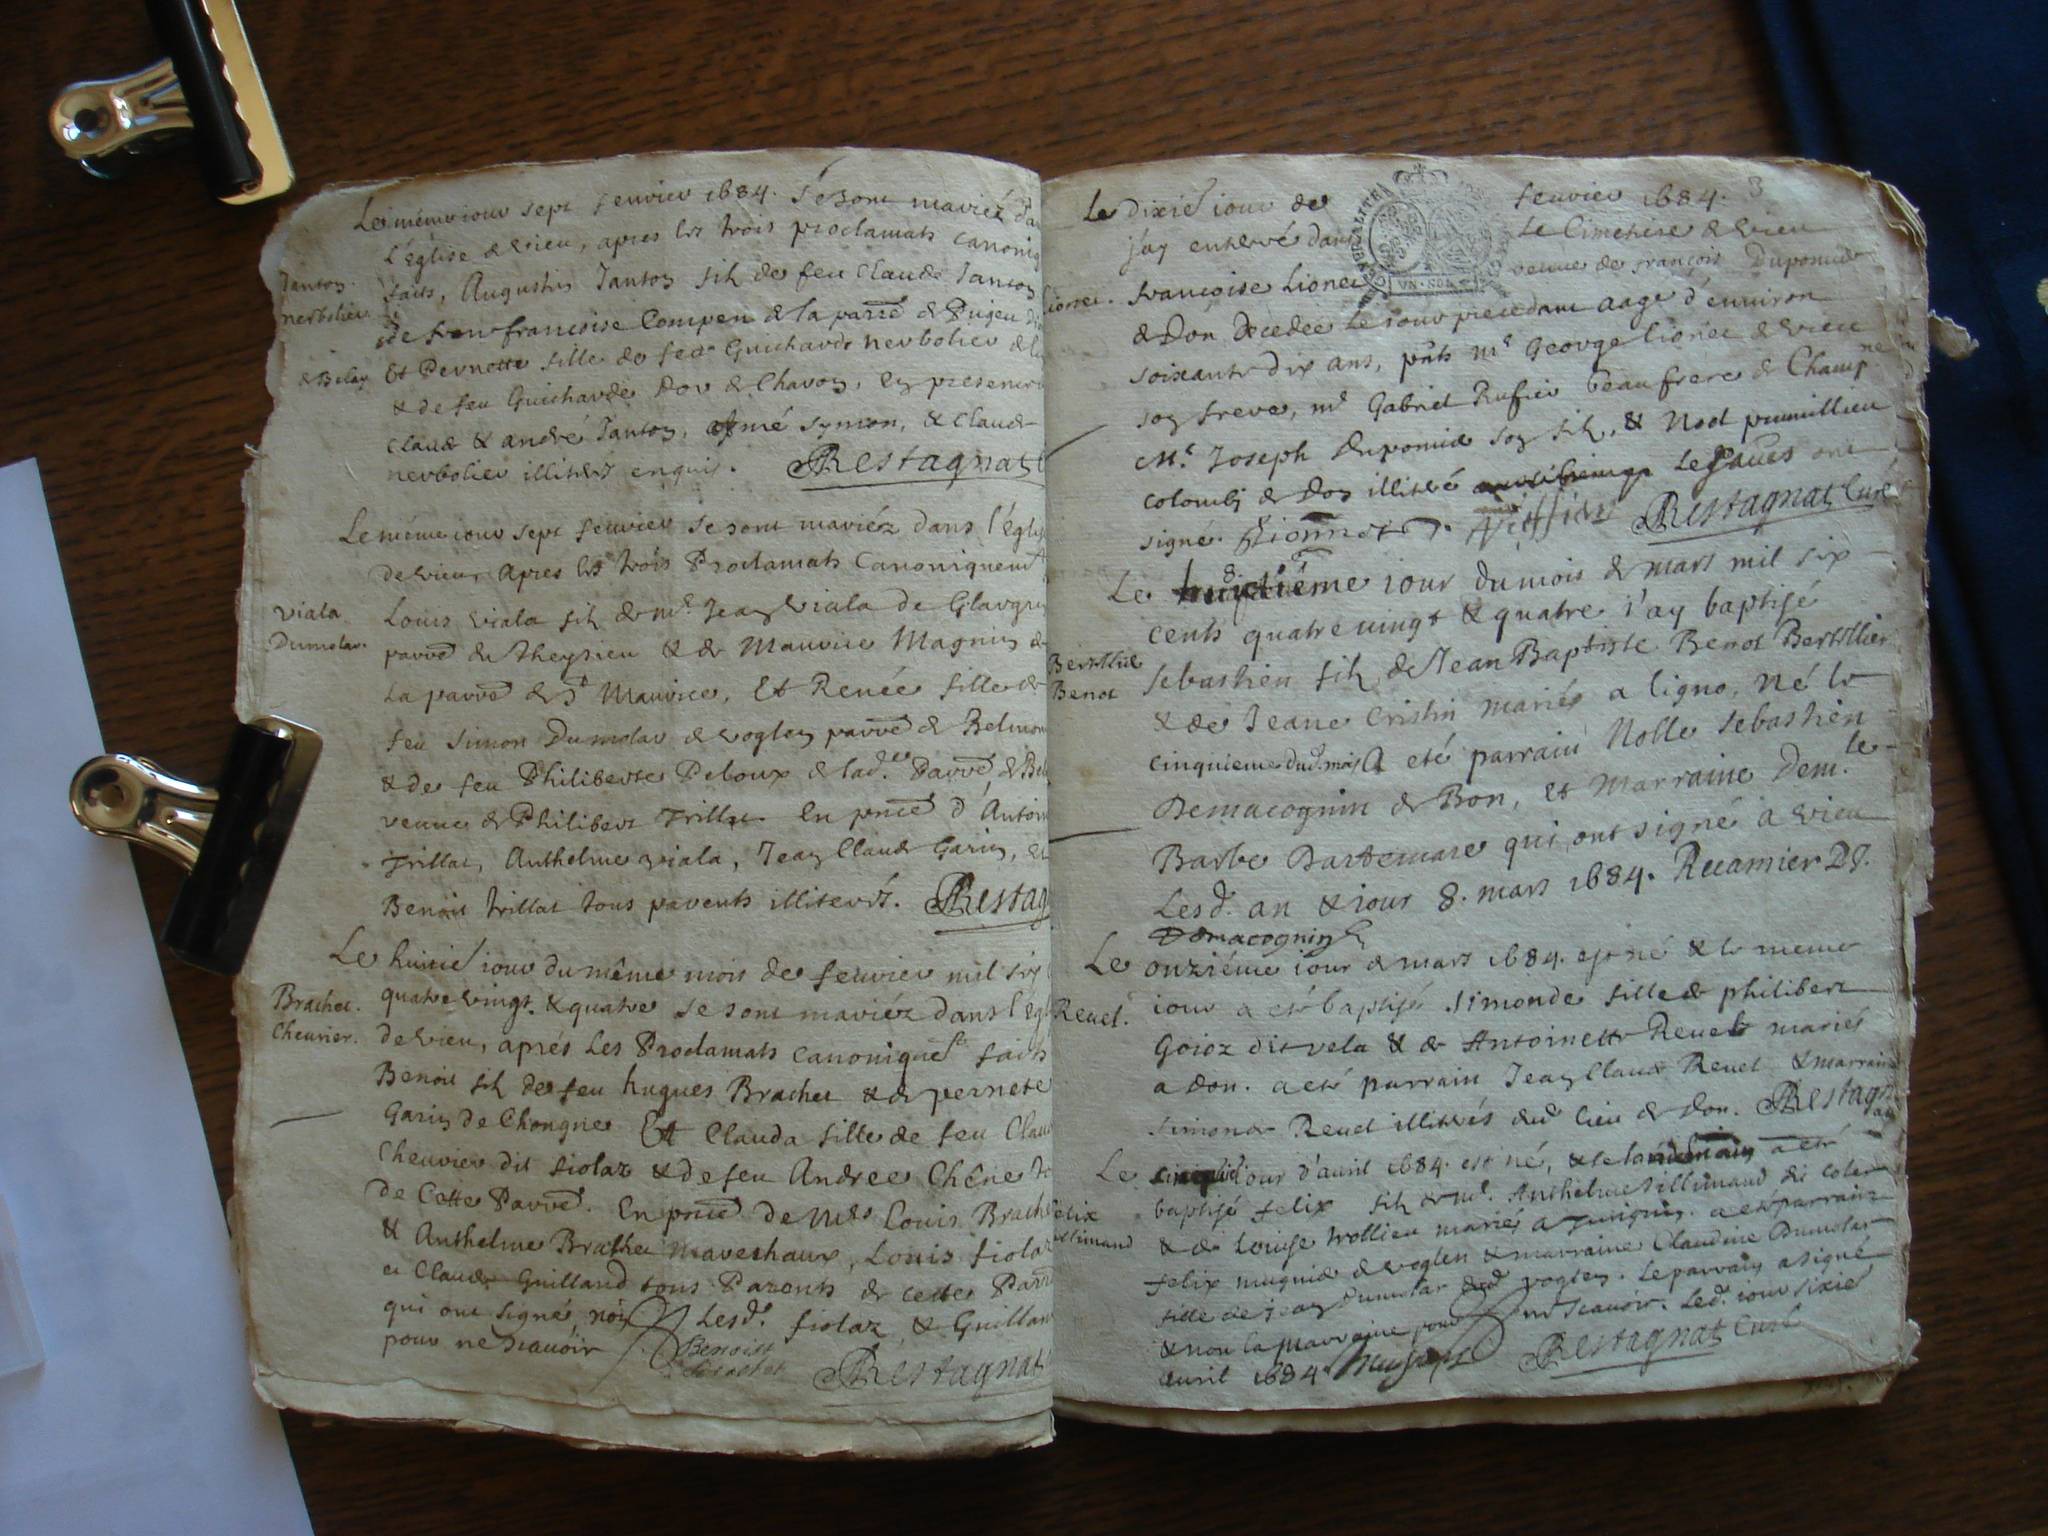 Le même iour sept feuvier 1684. se sont mariéz da
l'église de vieu, apres les trois proclamats canoniq
Jantoy.
nerbolier
faits, Augustin Jantoy fils de feu Claude Jantoy
de feu francoise Compen de la parre de Pugieu
& Belay
Et Pernette fille de feu Guichard nerbolier de
& de feu Guicharde Dor de Chavoy, en presence
Claude & andré Jantoy, aymé symon, & Claude
nerbolier illiterés enquis. Restagnat
Le même iour sept feuvier se sont mariéz dans l'églis
de vieu apres les trois Proclamats Canoniquemt
Viala
Dumolar.
Louis viala fils de mr. Jean viala de
parre de Theyzieu & de Maurice Magnin de
La parre de St Maurice, Et Renée fille de
feu Simon Dumolar de voglen parre de Belmon
& de feu Philiberte Peloux de lad. Parre de Bel
veuue de Philibert Trillat. En pnce d'Antoin
Trillat, Anthelme viala, Jean Claude Garin, Et
Benoit trillat tous parents illiterés. Restag
Le huitie iour du même mois de feuvier mil six
Brachet.
Cheurier.
quatre vingt & quatre se sont mariéz dans l'égl
de vieu, aprés Les Proclamats canoniques faits
Benoit fils de feu hugues Brachet & de pernete
Garin de Chongne Et Clauda fille de feu Clau
Cheuvier dit fiolaz & de feu Andree Chêne
de Cette Parre. En pnce de Mes Louis Brach
& Anthelme Brachet mareschaux, Louis fiolaz
et Claude Guilland tous Parents de cette Parr
qui ont signé, non Lesd. fiolaz & Guillan
pour ne scauoir Benoist Brachet Restagnat
Le dixie iour de feuvier 1684. 3
j'ay enterré dans Le Cimetiere de vieu
Lionet.
francoise Lionet veuue de françois Duponid
de Don Decedee Le iour precedant aage d'enuiron
soixante dix ans, pnts mr George lionet de vieu
soy frere, mr Gabriel Rufier beaufrere de Champ
Mr. Joseph duponid soy fils, & Noel pumillieu
colomby de Don illitéré Lesquels ont
signé. Lionnet. Ruffier Restagnat Curé
Le huictiême 8 iour du mois de mars mil six
cents quatre uingt & quatre i'ay baptisé
Bertillié
Benot
sebastien fils de Jean Baptiste Benot Bertillier
& de Jeane Cristin mariés a ligno, né le
cinquieme dud. mois A eté parrain Noble sebastien
Demacognin de Bon, et Marraine Demle
Barbe Dartemare qui ont signé a vieu
Lesd. an & iour 8. mars 1684. Recamier
Demacognin
Le onziéme iour de mars 1684. est né & le meme
Reuet.
iour a eté baptisé simonde fille de philibert
Goioz dit vela & de Antoinette Reuet mariés
a Don. a eté parrain Jean Claude Reuet & marrain
simonde Reuet illitérés dud lieu de Don. Restagn
Le iour d'auril 1684. est né, & le a eté
felix
illimand
baptisé felix fils de mr. Anthelme
& de Louise trollieu mariés a a eté parrain
felix mugnie de voglen & marraine Claudine Dumolar
fille de Jean Dumolar dud voglen. Le parrain a signé
& non la marraine pour ne scauoir. Led. iour sixie
auril 1684. Restagnat Curé